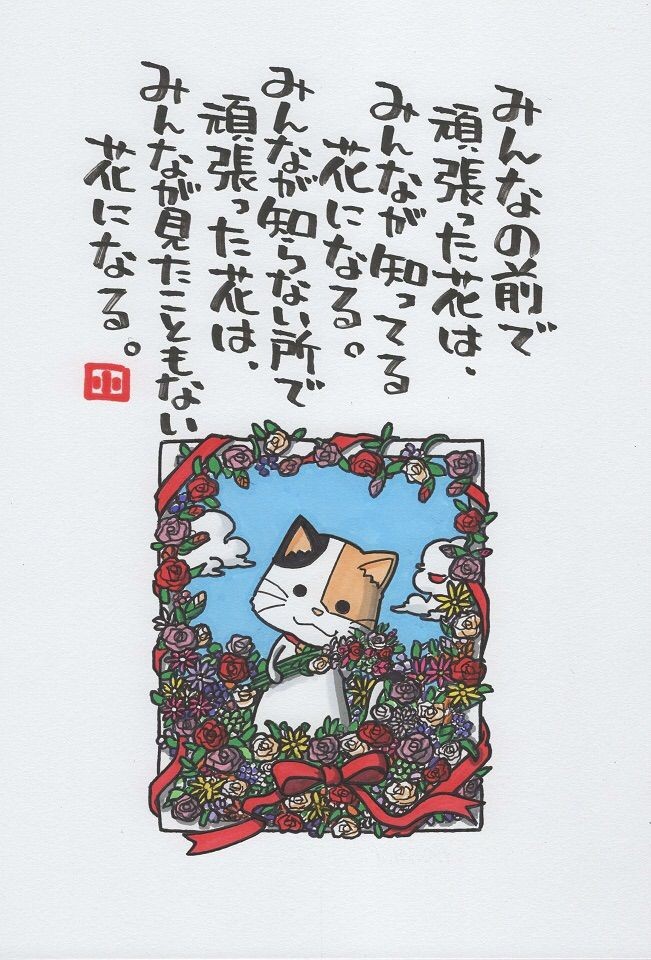 みんなの前で
頑張った花は、
みんなが知ってる
花になる。
みんなが知らない所で
頑張った花は、
みんなが見たこともない
花になる。